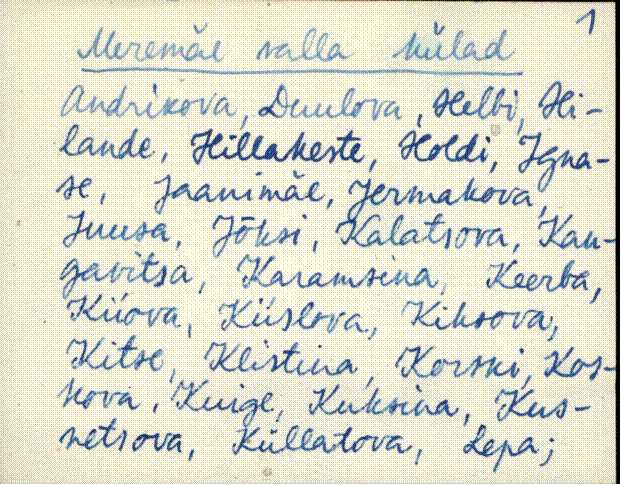 1
Meremäe valla külad
Andrikova, Duulova, Helbi, Hi-
lande, Hillakeste, Holdi, Igna-
se, Jaanimäe, Jermakova,
Juusa, Jõksi, Kalatsova, Kan-
gavitsa, Karamsina, Keerba,
Kiiova, Kiislova, Kiksova,
Kitse, Klistina, Korski, Kos-
kova, Kuige, Kuksina, Kus-
netsova, Küllatova, Lepa;